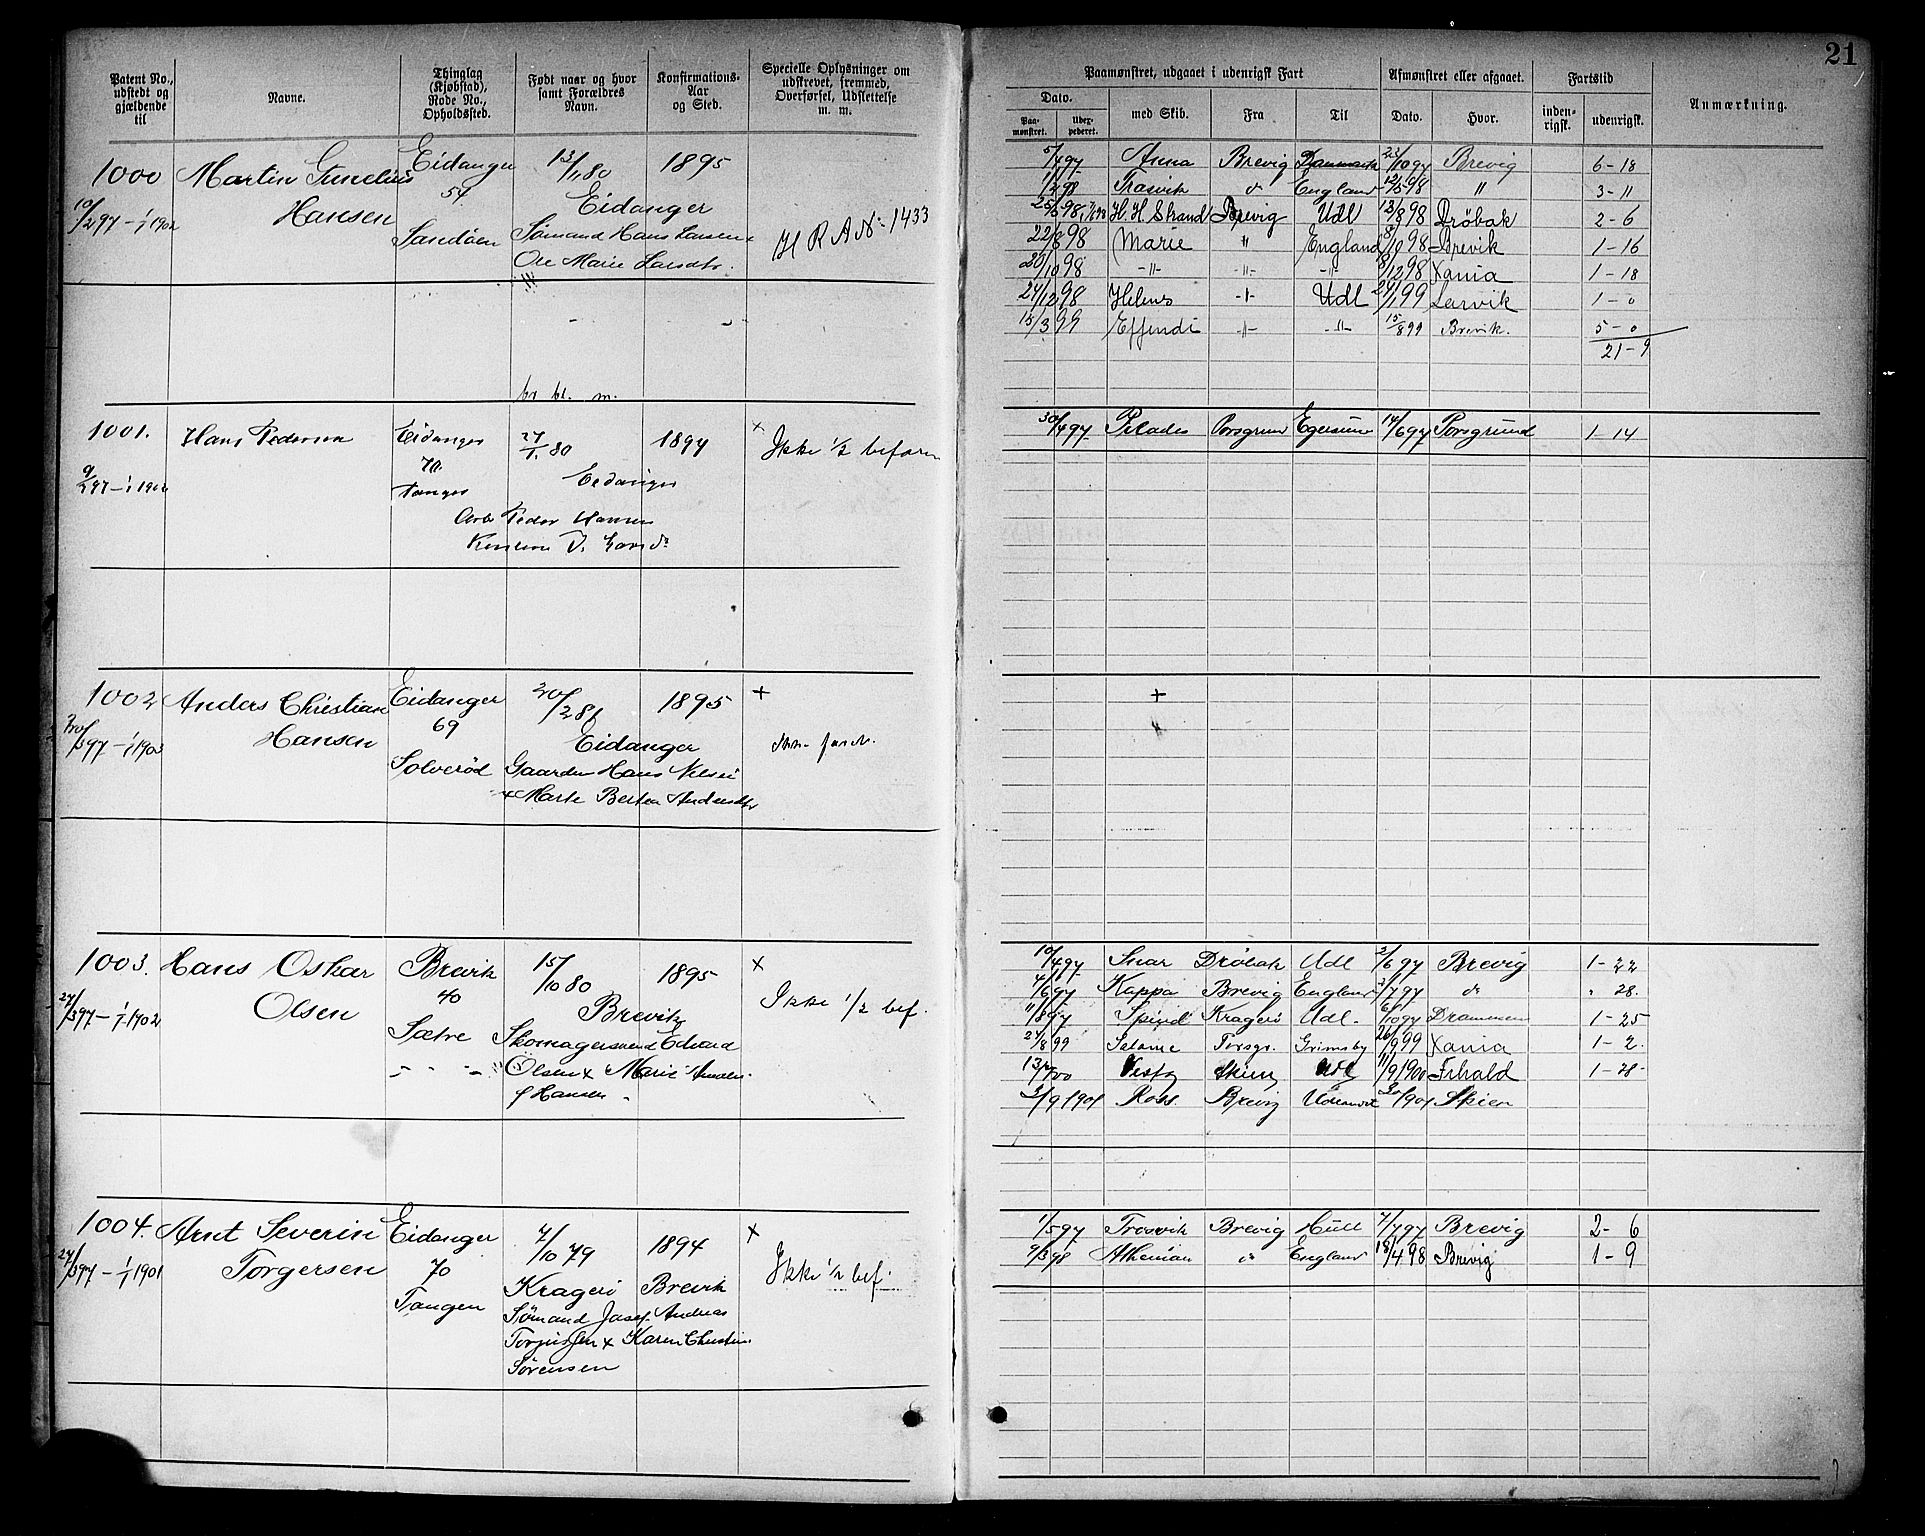 21
Patent No., udstedt og gjældende til
Navne.
Thinglag (Kjøbstad), Rode No., Opholdssted.
Født naar og hvor samt Forældres Navn.
Konfirmations-Aar og Sted.
Specielle Oplysninger om udskrevet, fremmed, Overførsel, Udslettelse m. m.
Paamønstret, udgaaet i udenrigsk Fart
Afmønstret eller afgaaet.
Fartstid
Anmærkning.
Dato.
Paa-mønstret.
med Skib.
Fra
Til
Dato.
Hvor.
inden-rigsk.
udenrigsk.
1000 Martin Gunelius Hansen
10/2 97 – 1/1 1902
Eidanger 54 Sandöen
13/11 80 Eidanger
Sømand Hans Larsen x
Ole Marie Larsdtr.
1895
H R A № 1433
5/4 97 Anna Brevig Danmark 23/10 97 Brevig 6-18
1/2 98 Trosvik do England 12/5 98 " 3-11
25/5 98 H. H. Strand Brevig Udl 13/8 98 Drøbak 2-6
22/8 98 Marie " England 8/10 98 Brevik 1-16
20/10 98 -"- -"- -"- 8/12 98 Xania 1-18
24/12 98 Helenes -"- Udl 24/1 99 Larvik 1-0
15/3 99 Effendi -"- -"- 15/8 99 Brevik. 5-0
21-9
1001. Hans Pedersen
9/2 97 – 1/1 1902
Eidanger 70. Tangen
27/1. 80 Eidanger
Arb Peder Hansen
1894
x Ikke 1/2 befaren
30/4 97 Pilades Porsgrun Egersund 14/6 97 Porsgrund 1-14
1002 Anders Christian Hansen
20/3 97 – 1/1 1903
Eidanger 69 Solverød
20/2 81 Eidanger
Gaardm Hans Nilsen
x Marte Bertea Andersdtr
1895
+
+
1003. Hans Oskar Olsen
27/3 97 – 1/1 1902
Brevik 40 Sætre
15/10 80 Brevik
Skomagersvend Edvard
Olsen x Marie Ander.
f Hansen
1895
x Ikke 1/2 bef.
10/4 97 Snar Drøbak Udl 2/6 97 Brevig 1-22
4/6 97 Kappa Brevig England 2/7 97 do " 28.
11/8 97 Spind Kragerö Udl. 6/10 97 Drammen 1-25
24/8 99 Salome Porsgr. Grimsby 26/9 99 Xania 1-2.
13/7 00 Vesta Skien Udl 11/9 1900 Frhald 1-28-
2/9 1901 Ross. Brevig Udlandet Skien
1004. Arnt Severin Torgersen
27/3 97 – 1/1 1901
Eidanger 70 Tangen
7/10 79 Kragerö
Sømand Josef Andreas
Torjussen x Karen Christin.
Sørensen
1894 Brevik
x Ikke 1/2 bef
1/5 97 Trosvik Brevig Hull 7/7 97 Brevig 2-6
9/3 98 Athenian do England 18/4 98 Brevig 1-9